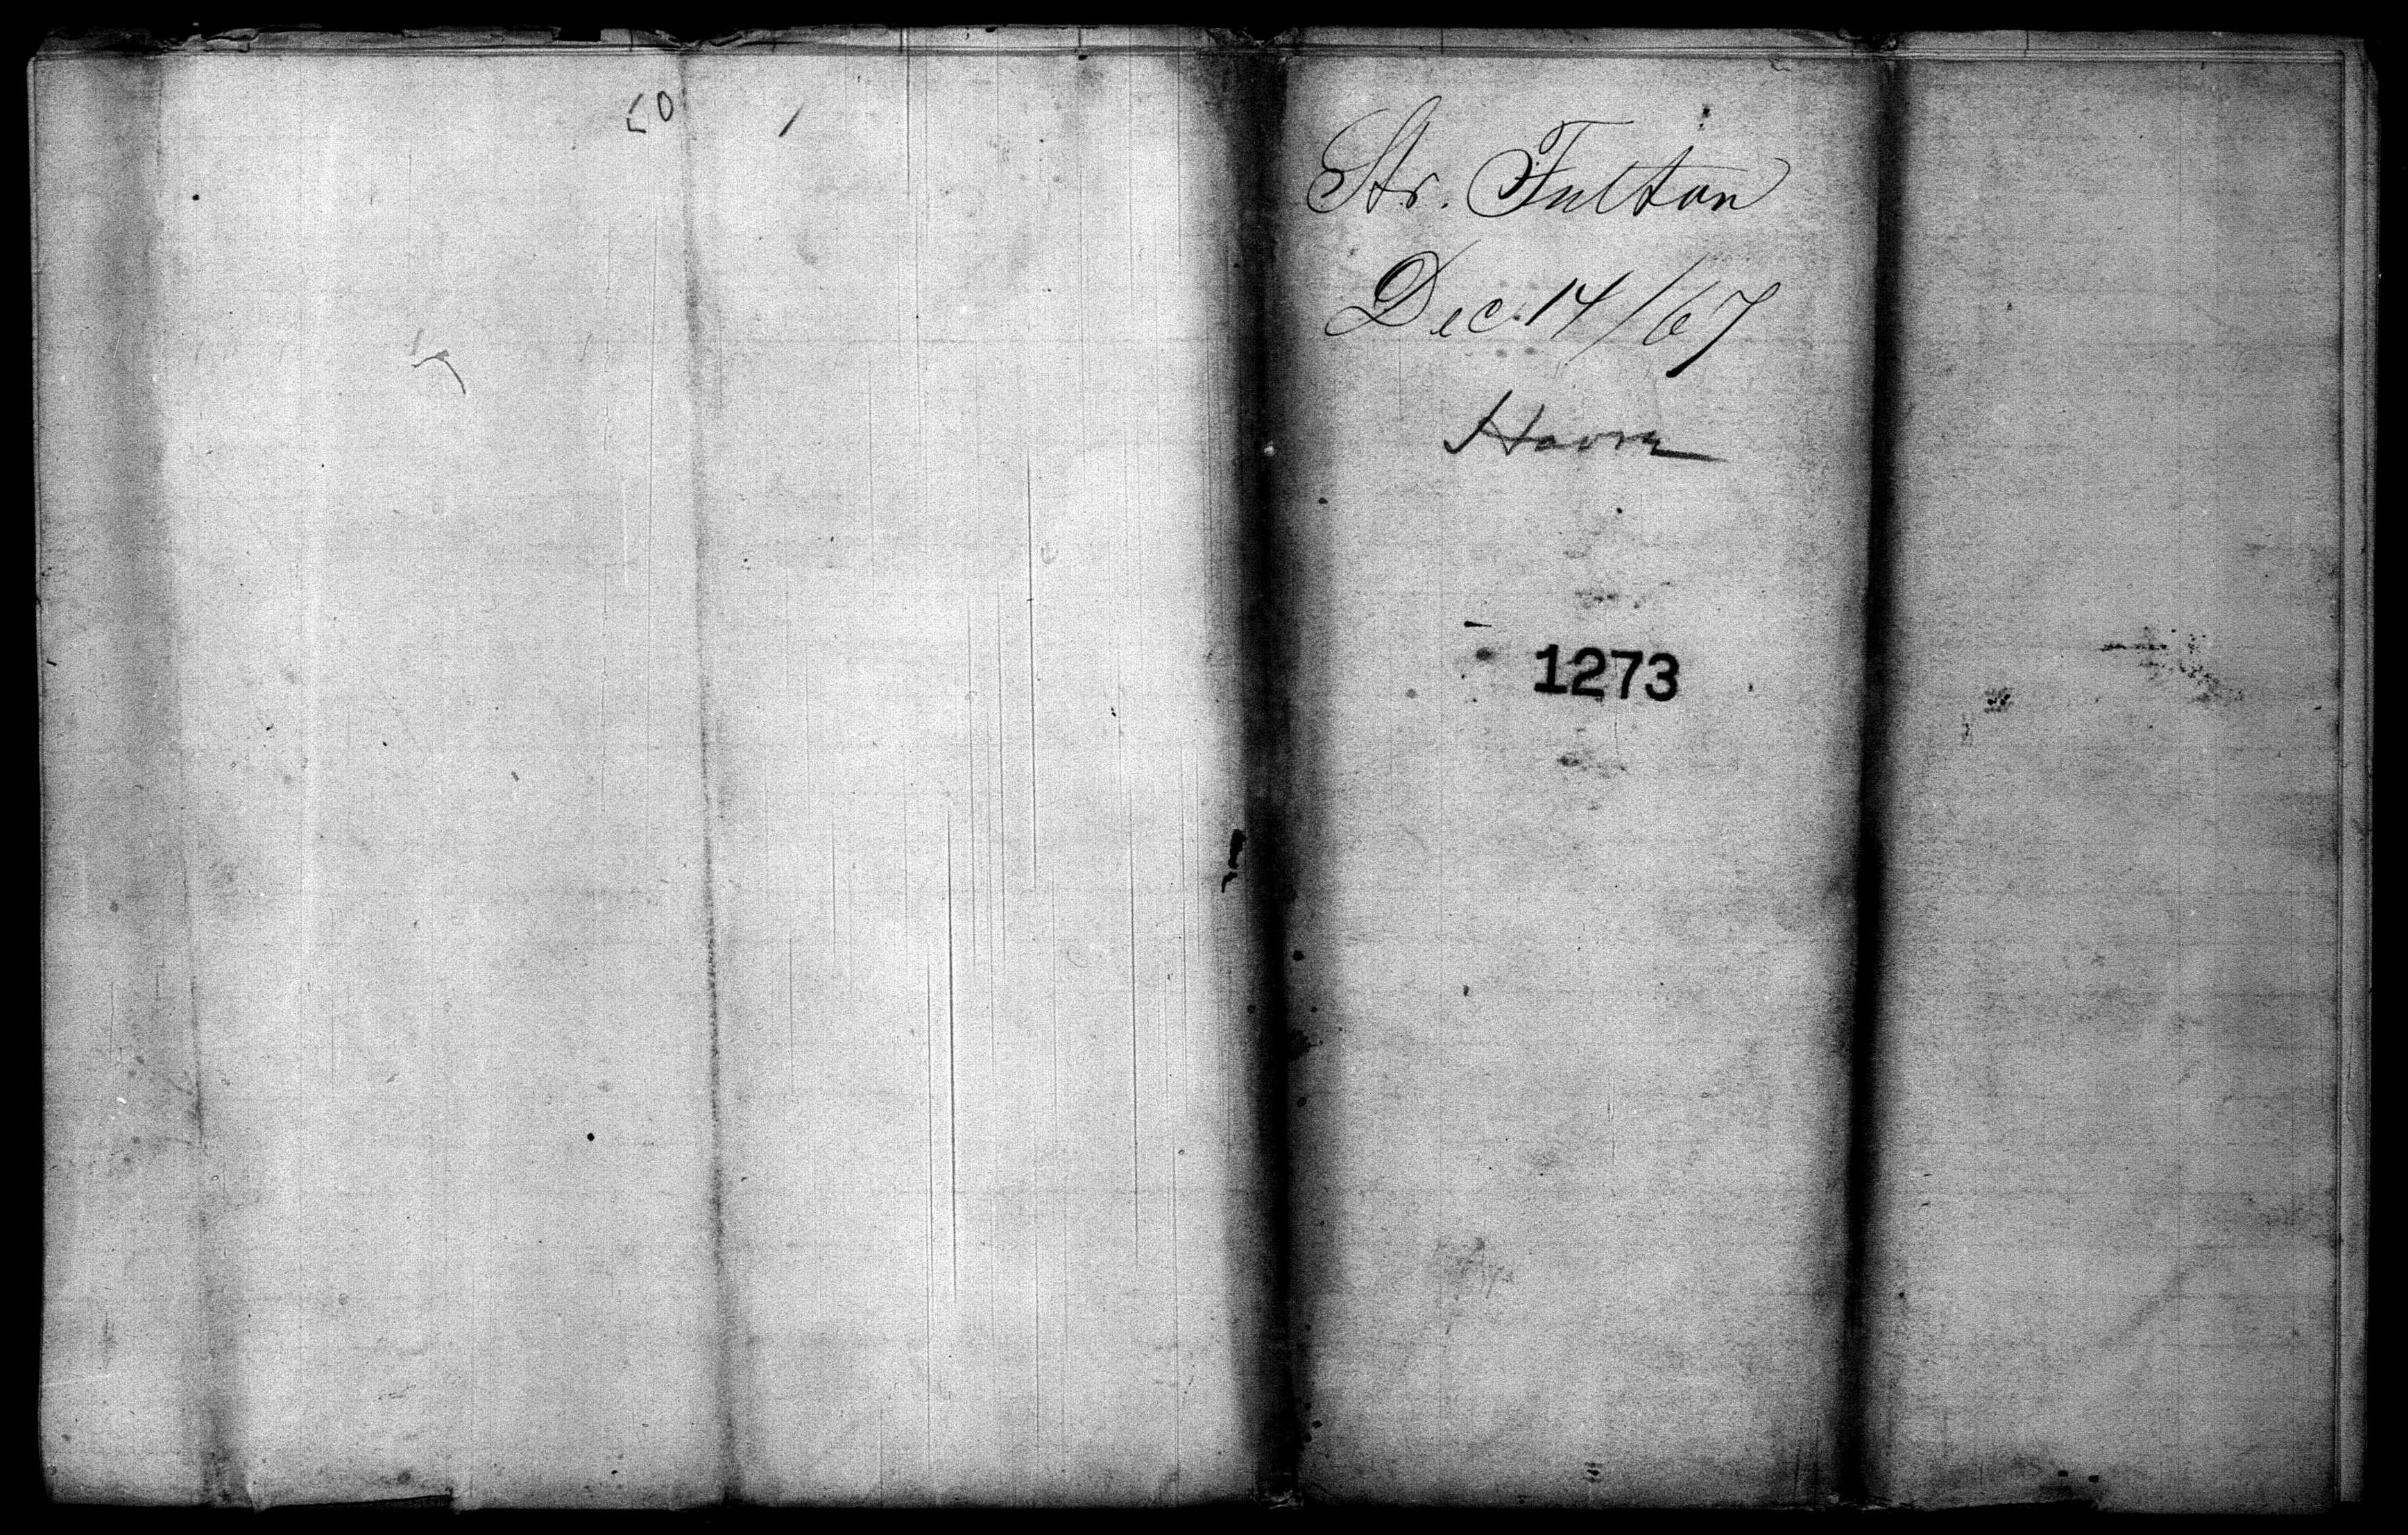 Str. Fulton
Dec. 14/67
Havre
1273